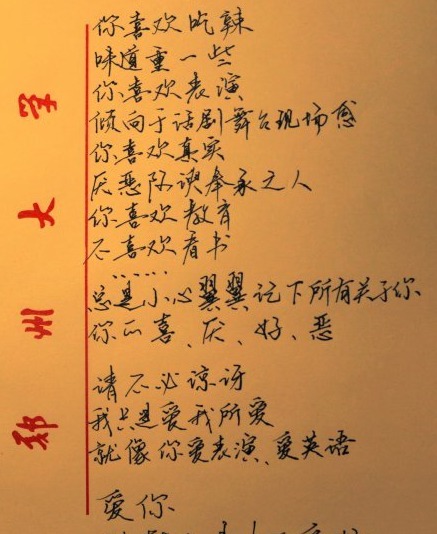 郑州大学
你喜欢吃辣
味道重一些
你喜欢表演
倾向于话剧舞台现场感
你喜欢真实
厌恶阿谀奉承之人
你喜欢教育
不喜欢看书
……
总是小心翼翼记下所有关于你
你的喜、厌、好、恶
请不必惊讶
我只是爱我所爱
就像你爱表演、爱英语
爱你